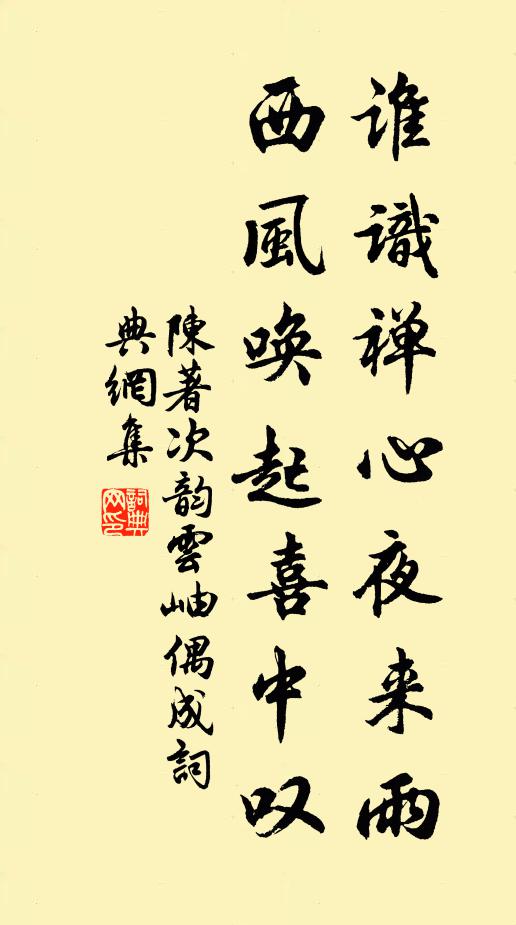 誰識禅心夜来雨
西風唤起喜中叹
陳著次韵雲岫偶成詞
典網集
詞典网印